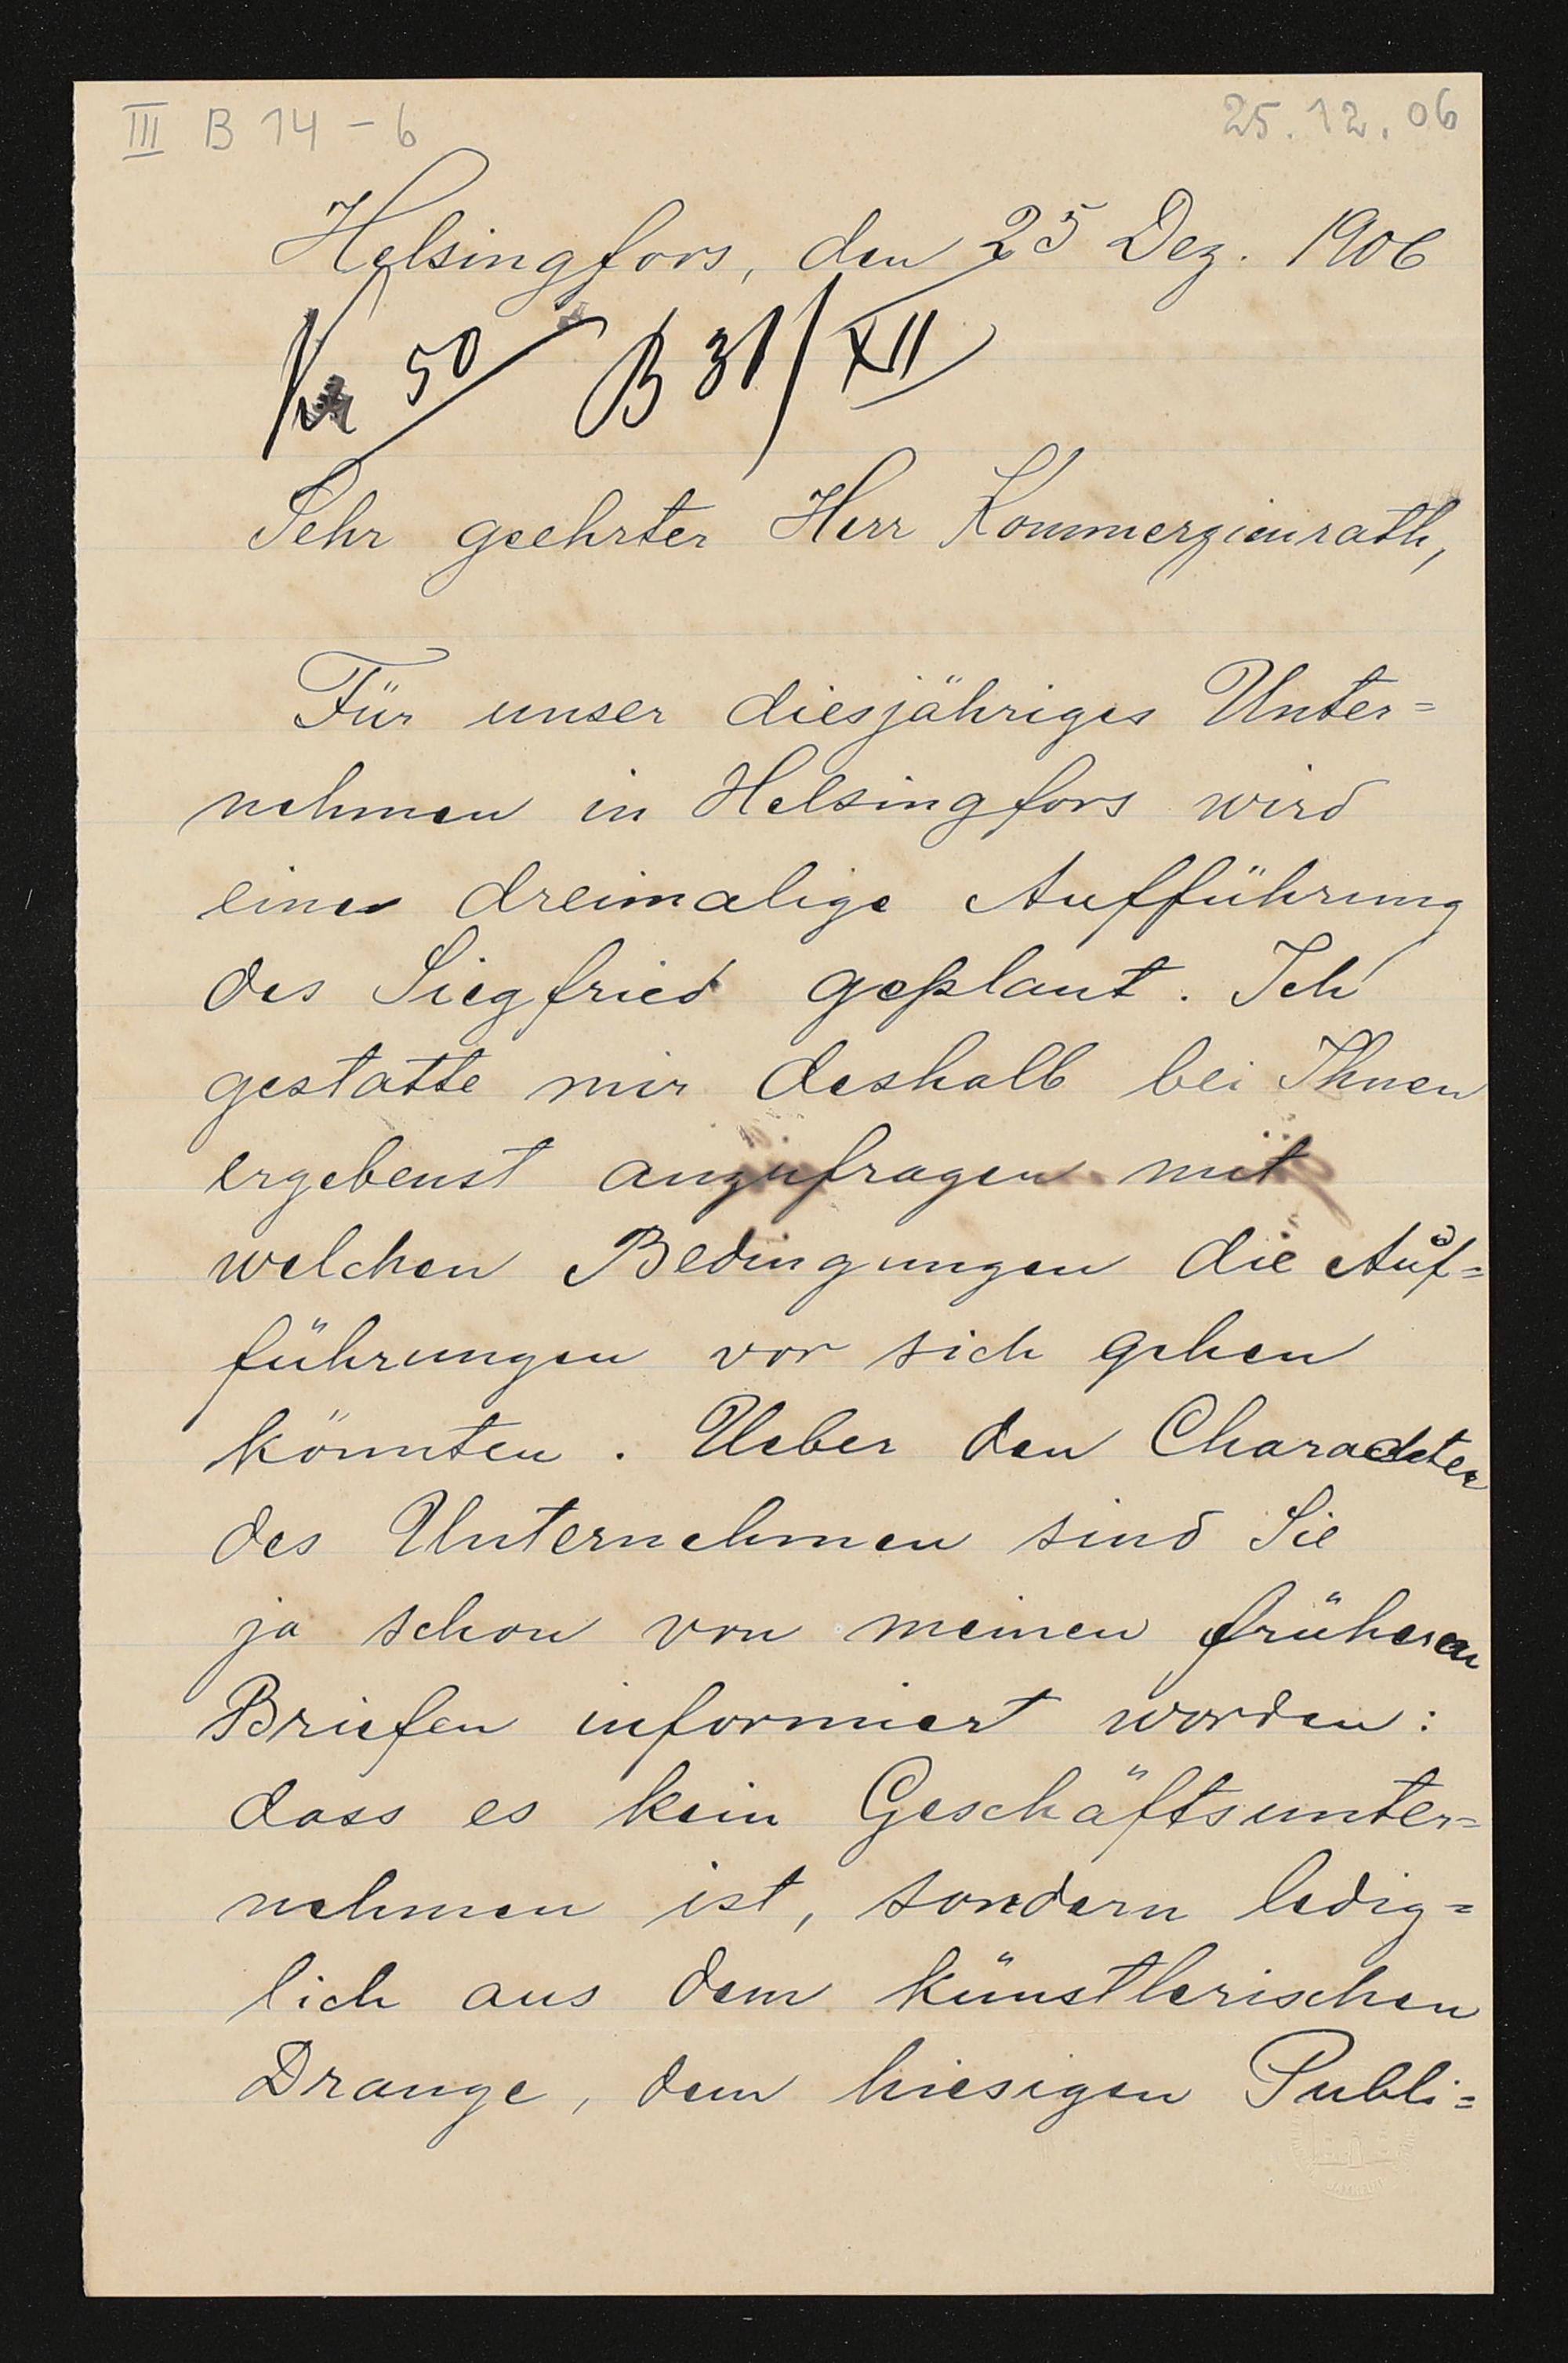 III B 14 - 6
25.12.06
Helsingfors, den 25 Dez. 1906
50 B 31/XII
Sehr geehrter Herr Kommerzienrath,
Für unser diesjähriges Unter=
nehmen in Helsingfors wird
eine dreimalige Aufführung
des Siegfried geplant. Ich
gestatte mir deshalb bei Ihnen
ergebenst anzufragen mit
welchen Bedingungen die Auf=
führungen vor sich gehen
könnten. Ueber den Charackter
des Unternehmen sind Sie
ja schon von meinen früheren
Briefen informiert worden:
dass es kein Geschäftsunter=
nehmen ist, sondern ledig=
lich aus dem künstlerischen
Drange, dem hiesigen Publi=